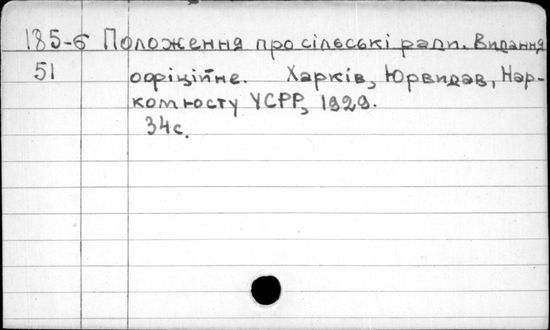 185-6 Положення про сільські ради. Видання
51 офіційне. Харків, Юрвидав, Нар-
комюсту УСРР, 1929.
34с.